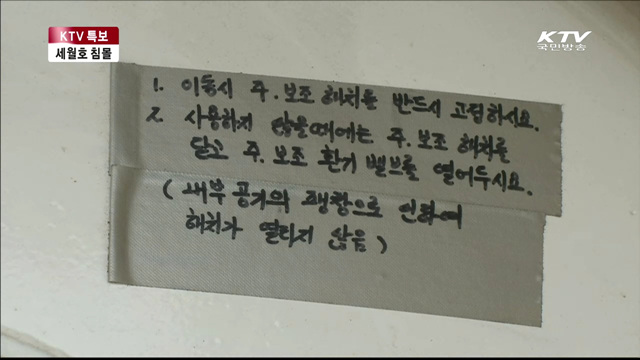 KTV 특보
세월호 침몰
KTV
국민방송
1. 이동시 주.보조 해치를 반드시 고정하시요.
2. 사용하지 않을때에는 주.보조 해치를
닫고 주.보조 환기 밸브를 열어두시요.
(내부공기의 팽창으로 인하여
해치가 열리지 않음)